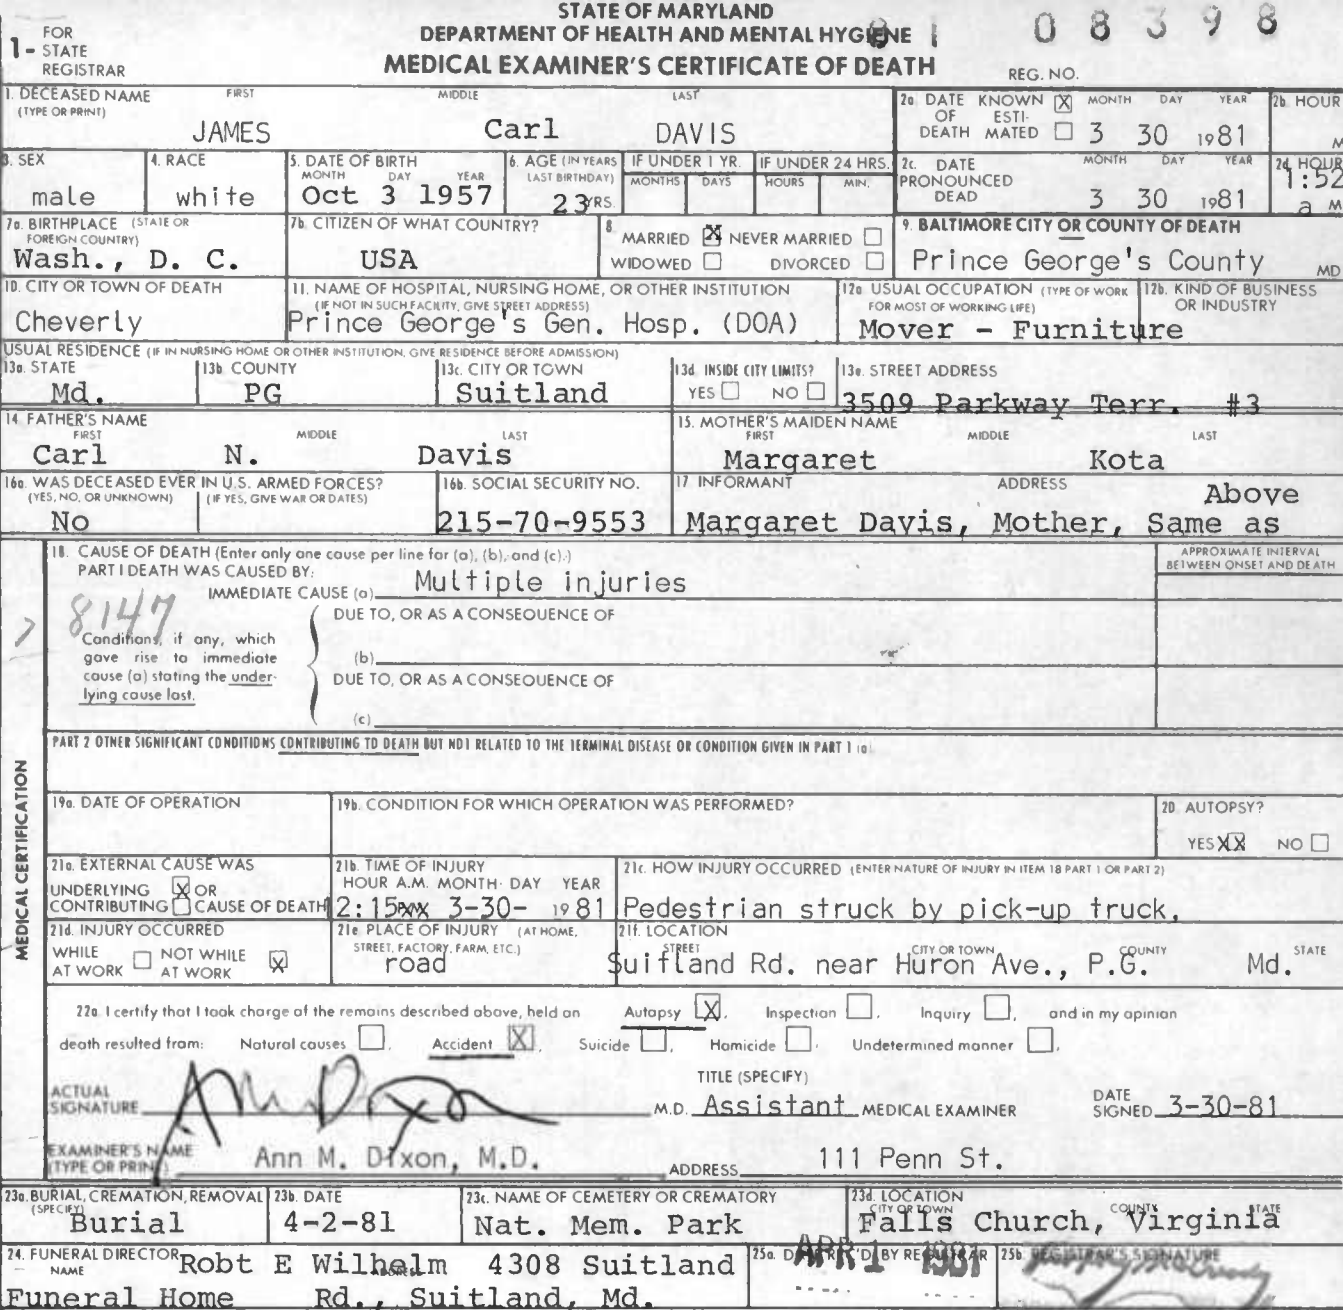 STATE OF MARYLAND
DEPARTMENT OF HEALTH AND MENTAL HYGIENE
MEDICAL EXAMINER'S CERTIFICATE OF DEATH
1- FOR STATE REGISTRAR
81 08398
REG. NO.
1. DECEASED NAME (TYPE OR PRINT) FIRST MIDDLE LAST
JAMES Carl DAVIS
2a. DATE OF DEATH KNOWN X ESTIMATED MONTH DAY YEAR
3 30 1981
2b. HOUR M
3. SEX
male
4. RACE
white
5. DATE OF BIRTH MONTH DAY YEAR
Oct 3 1957
6. AGE (IN YEARS LAST BIRTHDAY)
23 YRS.
IF UNDER 1 YR. MONTHS DAYS
IF UNDER 24 HRS. HOURS MIN.
2c. DATE PRONOUNCED DEAD MONTH DAY YEAR
3 30 1981
2d. HOUR
1:52 a M
7a. BIRTHPLACE (STATE OR FOREIGN COUNTRY)
Wash., D. C.
7b. CITIZEN OF WHAT COUNTRY?
USA
8. MARRIED X NEVER MARRIED
WIDOWED DIVORCED
9. BALTIMORE CITY OR COUNTY OF DEATH
Prince George's County MD
10. CITY OR TOWN OF DEATH
Cheverly
11. NAME OF HOSPITAL, NURSING HOME, OR OTHER INSTITUTION
(IF NOT IN SUCH FACILITY, GIVE STREET ADDRESS)
Prince George's Gen. Hosp. (DOA)
12a. USUAL OCCUPATION (TYPE OF WORK FOR MOST OF WORKING LIFE)
12b. KIND OF BUSINESS OR INDUSTRY
Mover - Furniture
USUAL RESIDENCE (IF IN NURSING HOME OR OTHER INSTITUTION, GIVE RESIDENCE BEFORE ADMISSION)
13a. STATE
Md.
13b. COUNTY
PG
13c. CITY OR TOWN
Suitland
13d. INSIDE CITY LIMITS?
YES NO
13e. STREET ADDRESS
3509 Parkway Terr. #3
14. FATHER'S NAME
FIRST MIDDLE LAST
Carl N. Davis
15. MOTHER'S MAIDEN NAME
FIRST MIDDLE LAST
Margaret Kota
16a. WAS DECEASED EVER IN U.S. ARMED FORCES?
(YES, NO, OR UNKNOWN) (IF YES, GIVE WAR OR DATES)
No
16b. SOCIAL SECURITY NO.
215-70-9553
17. INFORMANT ADDRESS
Above
Margaret Davis, Mother, Same as
MEDICAL CERTIFICATION
18. CAUSE OF DEATH (Enter only one cause per line for (a), (b), and (c).)
PART I DEATH WAS CAUSED BY:
IMMEDIATE CAUSE (a) Multiple injuries
APPROXIMATE INTERVAL BETWEEN ONSET AND DEATH
8147
DUE TO, OR AS A CONSEQUENCE OF
Conditions, if any, which
gave rise to immediate
cause (a) stating the under-
lying cause last.
(b)
DUE TO, OR AS A CONSEQUENCE OF
(c)
PART 2 OTHER SIGNIFICANT CONDITIONS CONTRIBUTING TO DEATH BUT NOT RELATED TO THE TERMINAL DISEASE OR CONDITION GIVEN IN PART 1 (a)
19a. DATE OF OPERATION
19b. CONDITION FOR WHICH OPERATION WAS PERFORMED?
20. AUTOPSY?
YES XX NO
21a. EXTERNAL CAUSE WAS
UNDERLYING X OR
CONTRIBUTING CAUSE OF DEATH
21b. TIME OF INJURY
HOUR A.M. MONTH DAY YEAR
2:15 3-30- 1981
21c. HOW INJURY OCCURRED (ENTER NATURE OF INJURY IN ITEM 18 PART 1 OR PART 2)
Pedestrian struck by pick-up truck.
21d. INJURY OCCURRED
WHILE AT WORK NOT WHILE AT WORK X
21e. PLACE OF INJURY (AT HOME, STREET, FACTORY, FARM, ETC.)
road
21f. LOCATION
STREET CITY OR TOWN COUNTY STATE
Suitland Rd. near Huron Ave., P.G. Md.
22a. I certify that I took charge of the remains described above, held an Autopsy X, Inspection, Inquiry, and in my opinion
death resulted from: Natural causes, Accident X, Suicide, Homicide, Undetermined manner.
ACTUAL SIGNATURE Ann M Dixon M.D.
TITLE (SPECIFY)
Assistant MEDICAL EXAMINER
DATE SIGNED 3-30-81
EXAMINER'S NAME (TYPE OR PRINT) Ann M. Dixon, M.D.
ADDRESS 111 Penn St.
23a. BURIAL, CREMATION, REMOVAL (SPECIFY)
Burial
23b. DATE
4-2-81
23c. NAME OF CEMETERY OR CREMATORY
Nat. Mem. Park
23d. LOCATION
CITY OR TOWN COUNTY STATE
Falls Church, Virginia
24. FUNERAL DIRECTOR NAME ADDRESS
Robt E Wilhelm 4308 Suitland
Funeral Home Rd., Suitland, Md.
25a. DATE REC'D BY REGISTRAR
APR 1 1981
25b. REGISTRAR'S SIGNATURE